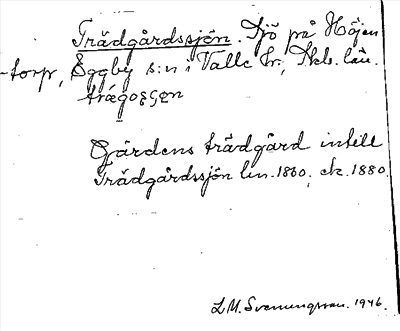 Trädgårdssjön. Sjö på Höjen
-torp, Eggby s:n i Valle hd, Skb. län.
Gårdens trädgård intill
Trädgårdssjön lm. 1860, ek. 1880.
L.M. Svenungsson. 1946.